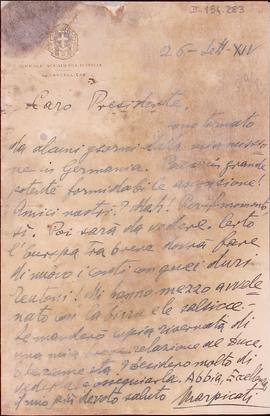 II-194-283
REALE ACCADEMIA D'ITALIA
26-Sett-XIV
Caro Presidente,
sono tornato
da alcuni giorni dalla mia missio
ne in Germania. Paese in grande
potente formidabile ascensione!
Amici nostri? Mah! Per il momento
sì. Poi sarà da vedere. Certo
l'Europa tra breve dovrà fare
di nuovo i conti con quei duri
Teutoni! Mi hanno mezzo avvele
nato con la birra e le salsicce.
Le manderò copia riservata di
una mia breve relazione al Duce,
Desidero molto di
vederla e ossequiarla. Abbia, Eccellenza,
il mio più devoto saluto Marpicati